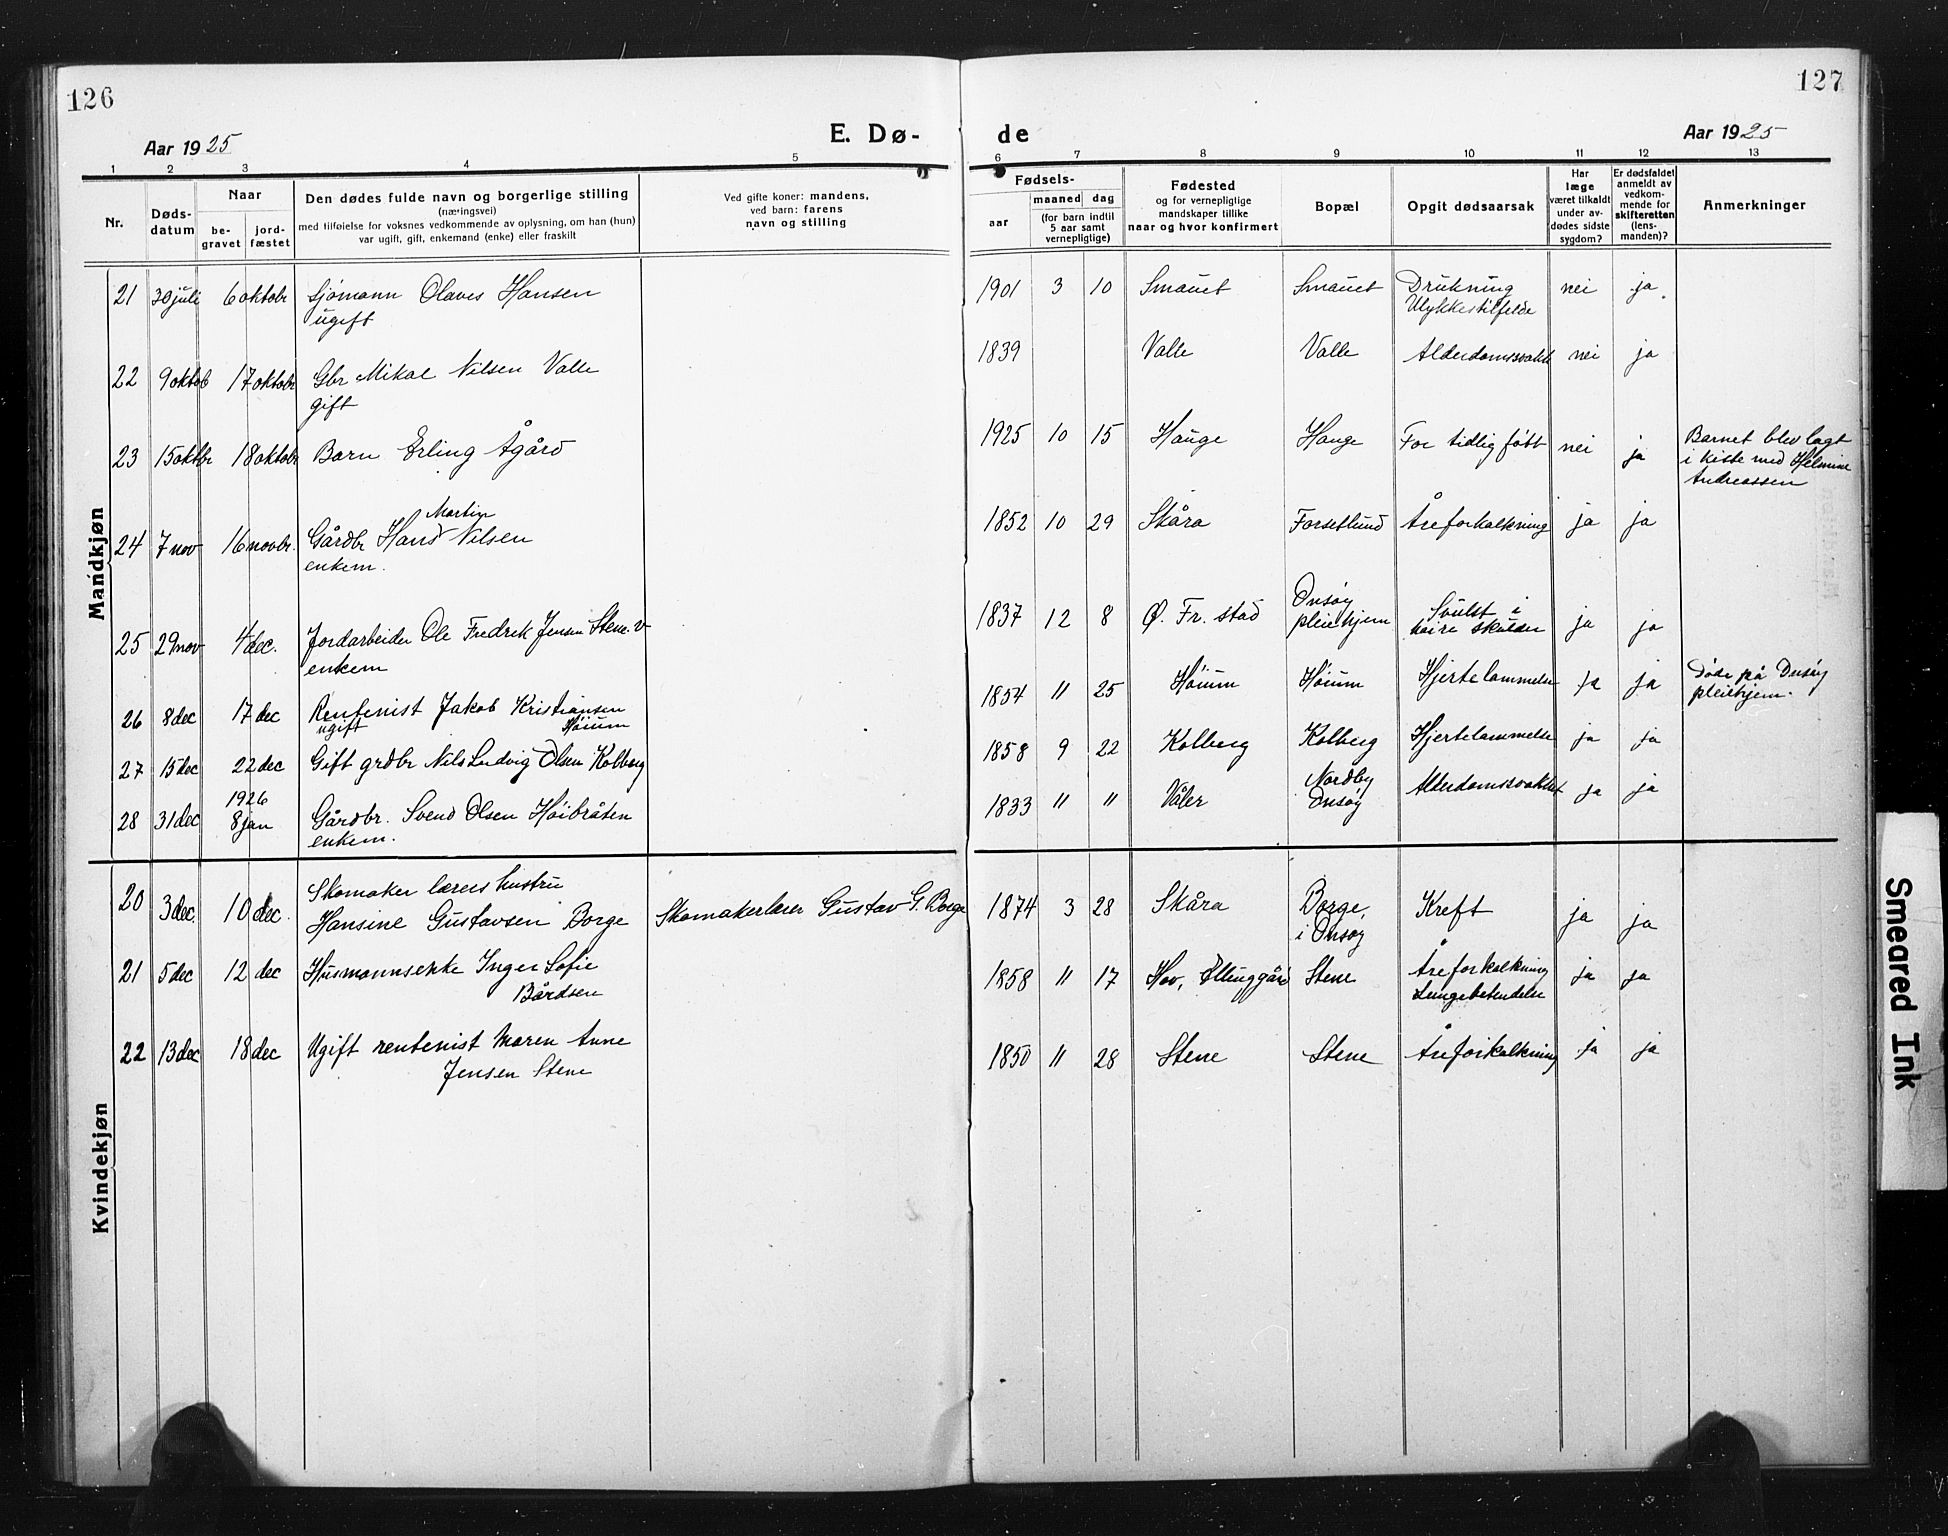 126
127
Aar 1925
E. Dø-
de
Aar 1925
1 2 3 4 5 6 7 8 9 10 11 12 13
Nr.
Døds-
datum
Naar
be-
gravet
jord-
fæstet
Den dødes fulde navn og borgerlige stilling
(næringsvei)
med tilføielse for voksnes vedkommende av oplysning, om han (hun)
var ugift, gift, enkemand (enke) eller fraskilt
Ved gifte koner: mandens,
ved barn: farens
navn og stilling
Fødsels-
aar
maaned dag
(for barn indtil
5 aar samt
vernepligtige)
Fødested
og for vernepligtige
mandskaper tillike
naar og hvor konfirmert
Bopæl
Opgit dødsaarsak
Har
læge
været tilkaldt
under av-
dødes sidste
sygdom?
Er dødsfaldet
anmeldt av
vedkom-
mende for
skifteretten
(lens-
manden)?
Anmerkninger
Mandkjøn
21 30 juli 6 oktobr Sjömann Olaves Hansen 1901 3 10 Smauet Smauet Drukning nei ja
ugift Ulykkestilfelde
22 9 oktob 17 oktobr Gbr Mikal Nilsen Valle 1839 Valle Valle Alderdomssvakh nei ja
gift
23 15 oktbr 18 oktobr Barn Erling Ågård 1925 10 15 Hauge Hauge For tidlig født nei ja Barnet blev lagt
i kiste med Helmine
Andreassen
Martin
24 7 nov 16 novbr. Gårdbr Hans Nilsen 1852 10 29 Skåra Forsetlund Åreforkalkning ja ja
enkem.
25 29 nov 4 dec. Jordarbeider Ole Fredrek Jensen Stene. v 1837 12 8 Ø. Fr. stad Onsöy Svulst i ja ja
enkem pleiehjem høire skulder
26 8 dec 17 dec Rentenist Jakob Kristiansen 1854 11 25 Höium Höium Hjertelammelse ja ja Døde på Onsöy
ugift Höium pleiehjem.
27 15 dec 22 dec Gift grdbr Nils Ludvig Olsen Kolberg 1858 9 22 Kolberg Kolberg Hjertelammelse ja ja
1926
28 31 dec 8 jan Gårdbr. Svend Olsen Höibråten 1833 11 11 Våler Nordby Alderdomssvakhet ja ja
enkem. Onsöy
Kvindekjøn
20 3 dec. 10 dec. Skomaker lærers hustru
Hansine Gustavsen Borge Skomakerlærer Gustav G. Borge 1874 3 28 Skåra Borge, Kreft ja ja
i Onsøy
21 5 dec 12 dec Husmannsenke Inger Sofie 1858 11 17 Hov, Elinggård Stene Åreforkalkning ja ja
Bårdsen Lungebetendelse
22 13 dec 18 dec Ugift rentenist Maren Anne 1850 11 28 Stene Stene Åreforkalkning ja ja
Jensen Stene
Smeared Ink